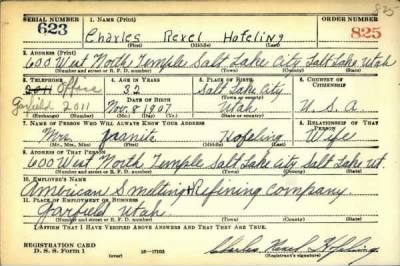 825
SERIAL NUMBER 1. NAME (Print) ORDER NUMBER
623 Charles Rexel Hofeling 825
(First) (Middle) (Last)
2. ADDRESS (Print)
600 West North Temple Salt Lake City Salt Lake Utah
(Number and street or R. F. D. number) (Town) (County) (State)
3. TELEPHONE 4. AGE IN YEARS 5. PLACE OF BIRTH 6. COUNTRY OF CITIZENSHIP
2011 Office 32 Salt Lake City
DATE OF BIRTH (Town or county)
Garfield 2011 Nov. 8 1907 Utah U.S.A.
(Exchange) (Number) (Mo.) (Day) (Yr.) (State or country)
7. NAME OF PERSON WHO WILL ALWAYS KNOW YOUR ADDRESS 8. RELATIONSHIP OF THAT PERSON
Mrs. Juanita Hofeling Wife
(Mr., Mrs., Miss) (First) (Middle) (Last)
9. ADDRESS OF THAT PERSON
600 West North Temple Salt Lake City Salt Lake Ut.
(Number and street or R. F. D. number) (Town) (County) (State)
10. EMPLOYER'S NAME
American Smelting + Refining Company.
11. PLACE OF EMPLOYMENT OR BUSINESS
Garfield Utah.
(Number and street or R. F. D. number) (Town) (County) (State)
I AFFIRM THAT I HAVE VERIFIED ABOVE ANSWERS AND THAT THEY ARE TRUE.
REGISTRATION CARD
D. S. S. Form 1 (over) 16—17105 Charles Rexel Hofeling
(Registrant's signature)